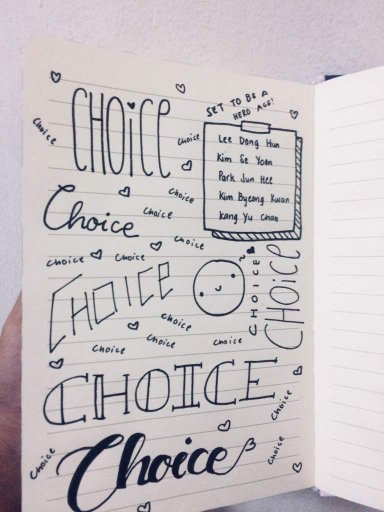 CHOICE
SET TO BE A
HERO ACE!
Choice
Choice
Lee Dong Hun
Kim Se Yoon
Park Jun Hee
Kim Byeong Kwan
Kang Yu Chan
Choice
Choice
Choice
Choice
Choice
Choice
CHOICE
CHOICE
CHOICE
Choice
Choice
Choice
Choice
CHOICE
Choice
Choice
Choice
Choice